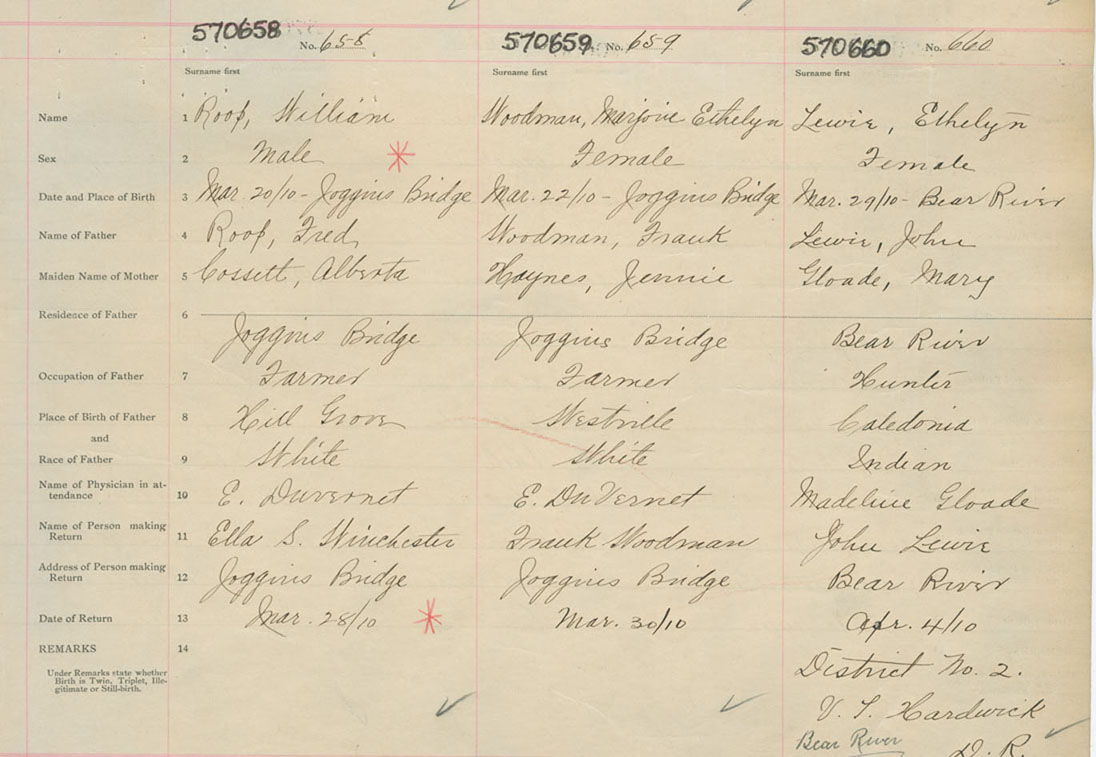 570658 No. 658 570659 No. 659 570660 No. 660
Surname first Surname first Surname first
Name 1 Roop, William Woodman, Marjorie Ethelyn Lewis, Ethelyn
Sex 2 Male Female Female
Date and Place of Birth 3 Mar. 20/10 - Joggins Bridge Mar. 22/10 - Joggins Bridge Mar. 29/10 - Bear River
Name of Father 4 Roop, Fred Woodman, Frank Lewis, John
Maiden Name of Mother 5 Cossett, Alberta Haynes, Jennie Gloade, Mary
Residence of Father 6
Joggins Bridge Joggins Bridge Bear River
Occupation of Father 7 Farmer Farmer Hunter
Place of Birth of Father 8 Hill Grove Westville Caledonia
and
Race of Father 9 White White Indian
Name of Physician in at-
tendance 10 E. Duvernet E. DuVernet Madeline Gloade
Name of Person making
Return 11 Ella S. Winchester Frank Woodman John Lewis
Address of Person making
Return 12 Joggins Bridge Joggins Bridge Bear River
Date of Return 13 Mar. 28/10 Mar. 30/10 Apr. 4/10
REMARKS 14
Under Remarks state whether
Birth is Twin, Triplet, Ille-
gitimate or Still-birth.
District No. 2.
Hardwick
Bear River D. R.